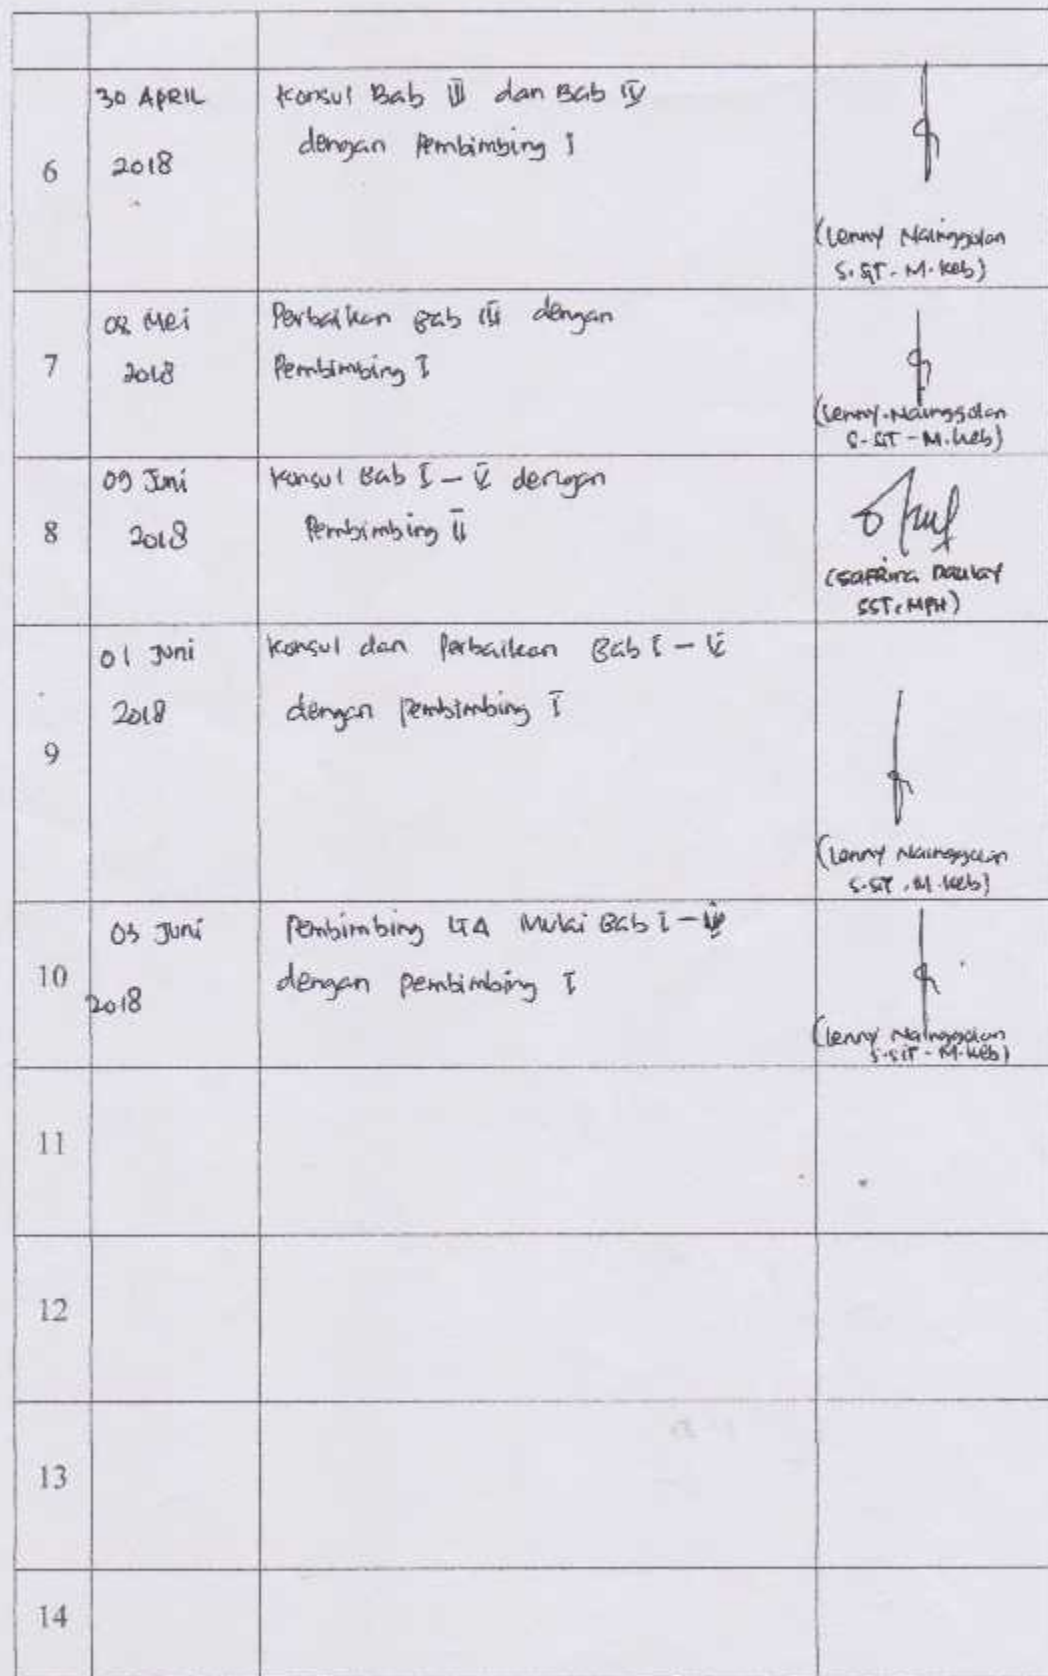 6
30 APRIL
2018
Konsul Bab III dan Bab IV
dengan Pembimbing I
(Lenny Nainggolan
S.SiT - M.Keb)
7
Mei
2018
Perbaikan Bab III dengan
Pembimbing I
(Lenny Nainggolan
S-SiT - M.Keb)
8
09 Juni
2018
Konsul Bab I - V dengan
Pembimbing II
(Safrina Daulay
SST, MPH)
9
01 Juni
2018
Konsul dan Perbaikan Bab I - V
dengan Pembimbing I
(Lenny Nainggolan
S-SiT . M.Keb)
10
Juni
2018
Pembimbing LTA Mulai Bab I -
dengan pembimbing I
(Lenny Nainggolan
S-SiT - M.Keb)
11
12
13
14